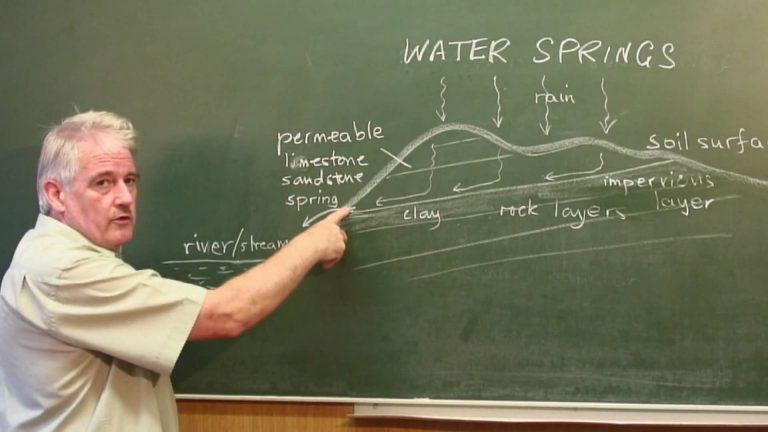 WATER SPRINGS
rain
permeable
limestone
sandstone
spring
soil surfa
impervious
layer
clay
rock layers
river/stream